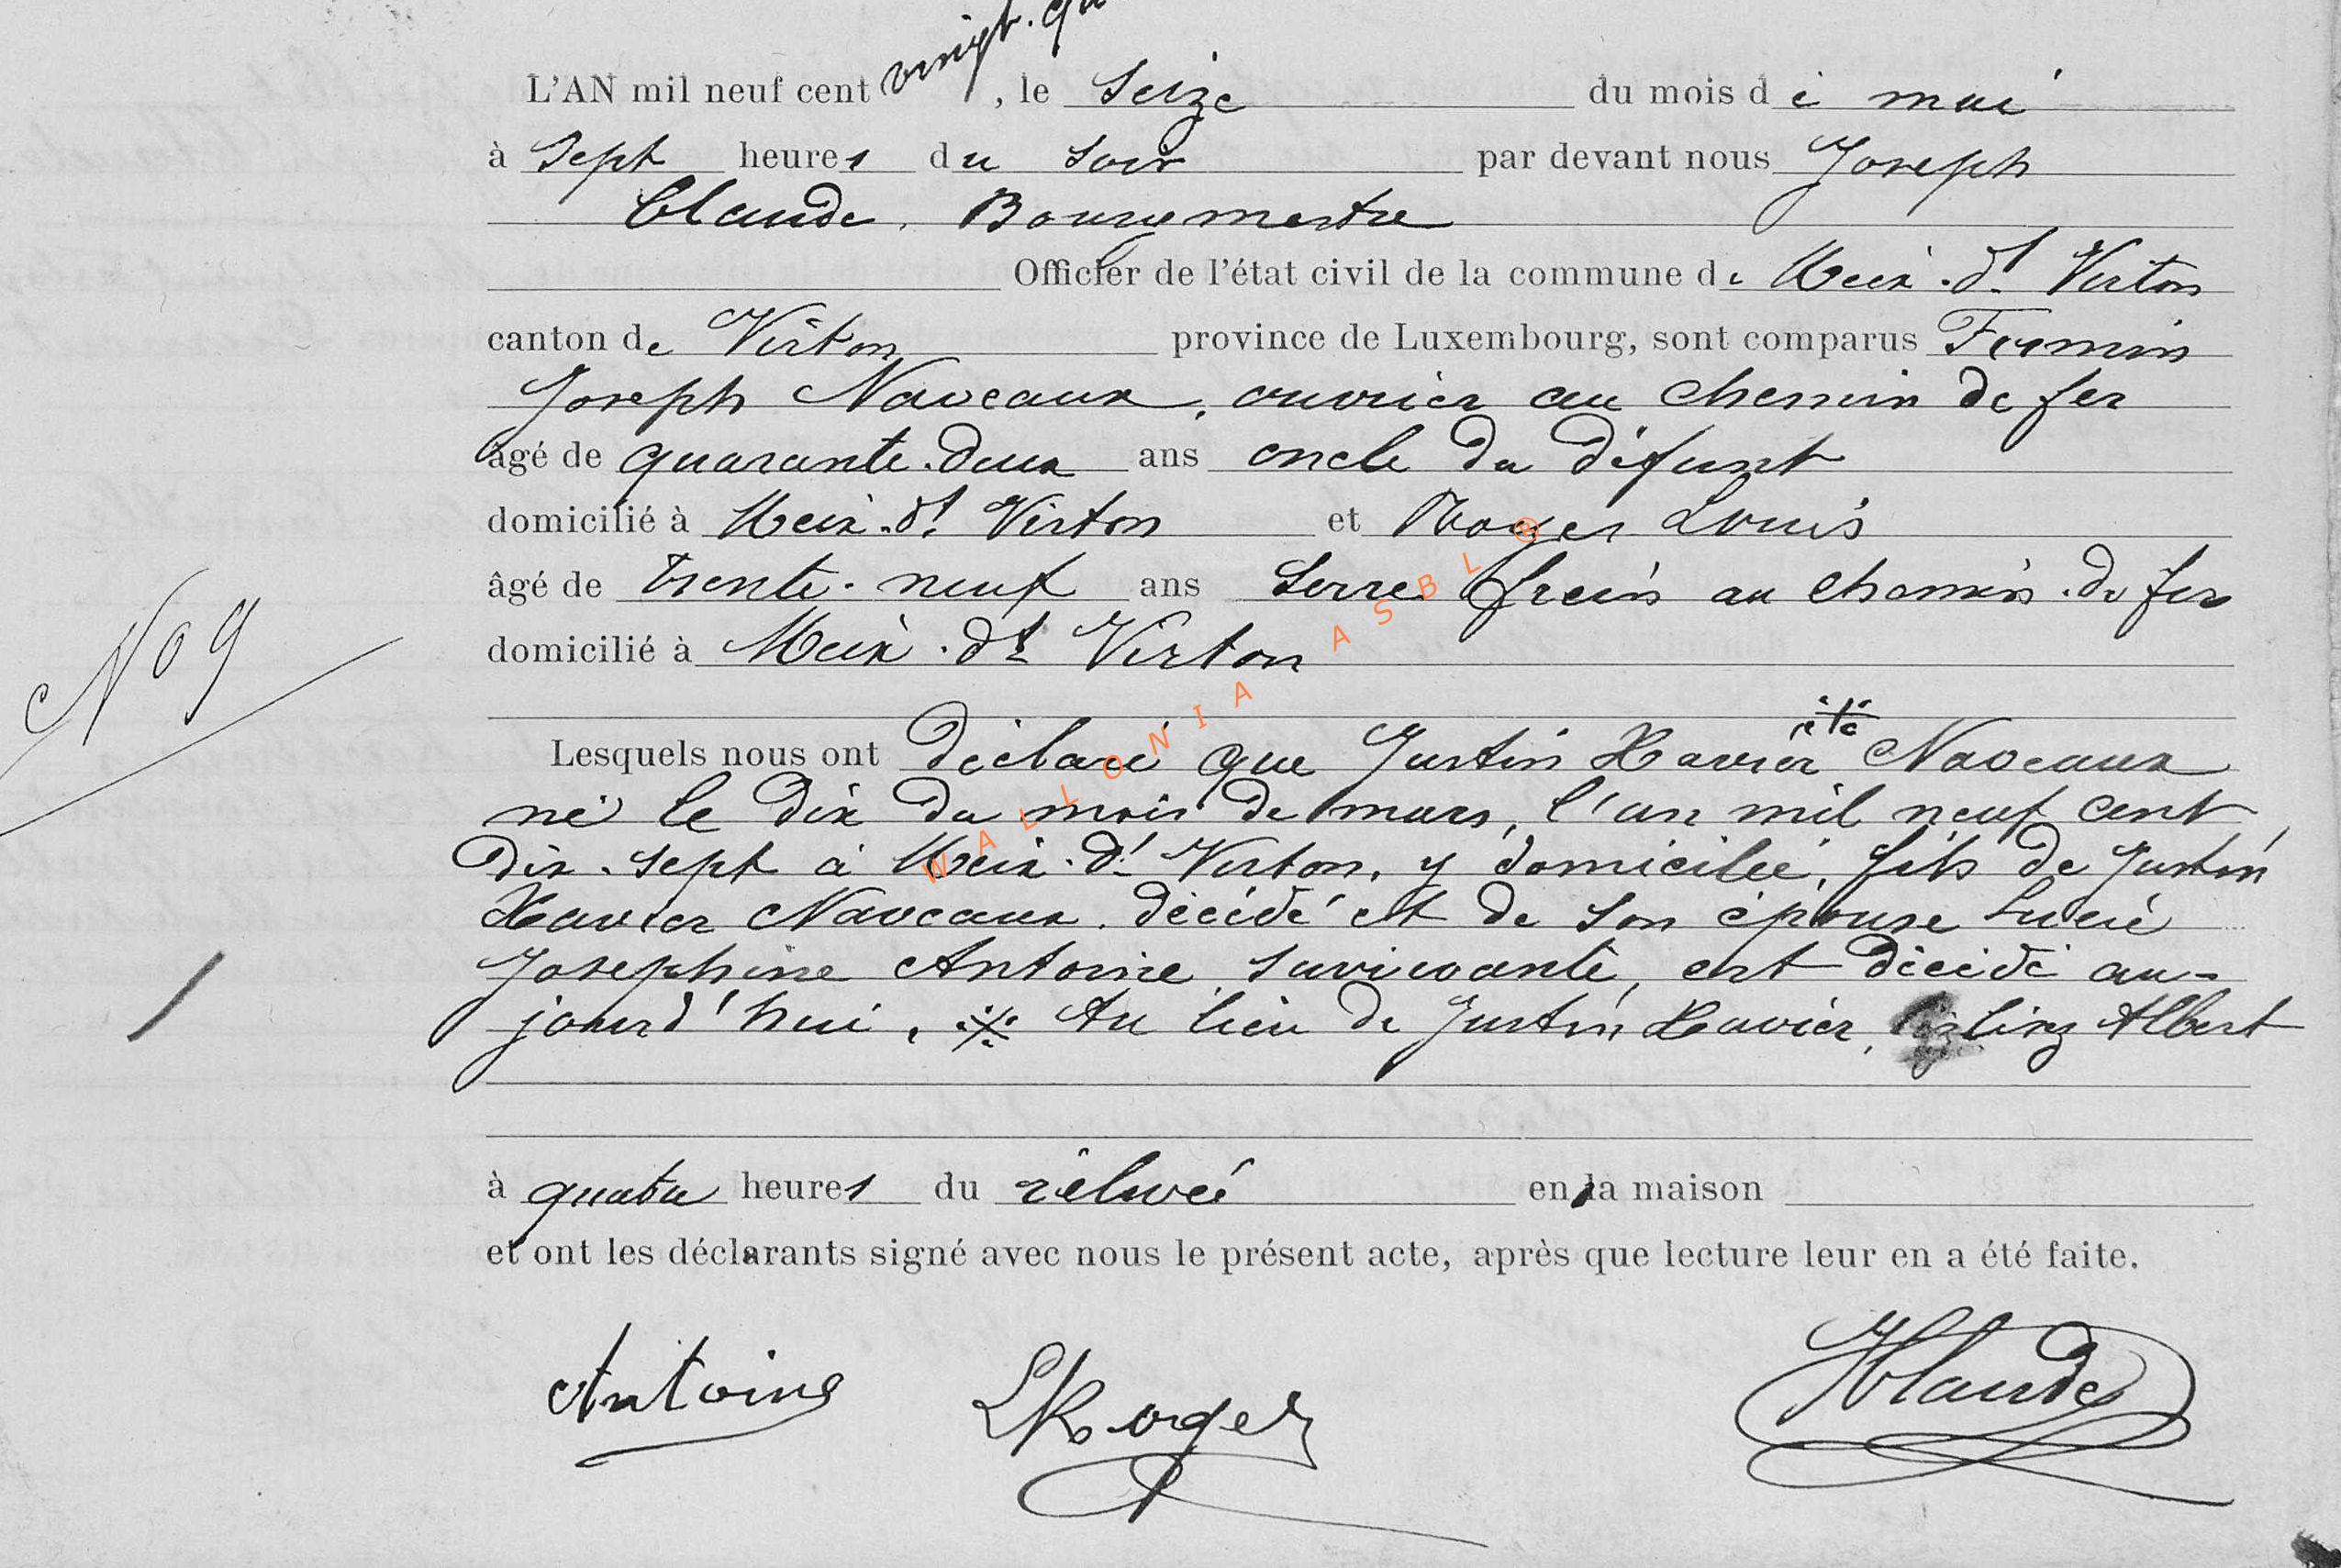 vingt. qu
L'AN mil neuf cent , le Seize du mois de mai
à Sept heures du soir par devant nous Joseph
Claude, Bourgmestre
Officier de l'état civil de la commune de Meix-dt Virton
canton de Virton province de Luxembourg, sont comparus Firmin
Joseph Naveaux, ouvrier au chemin de fer
âgé de quarante-deux ans oncle du défunt
domicilié à Meix-dt Virton et Roger Louis
âgé de trente-neuf ans serre freins au chemin de fer
domicilié à Meix-dt Virton
No 9
Lesquels nous ont déclaré que Justin Xavier Naveaux
né le dix du mois de mars, l'an mil neuf cent
dix-sept à Meix-dt Virton, y domicilié, fils de Justin
Xavier Naveaux, décédé et de son épouse Lucie
Joséphine Antoine, survivante, est décédé au-
jourd'hui, ※ Au lieu de Justin Xavier, lisez Albert
à quatre heures du rélevée en la maison
et ont les déclarants signé avec nous le présent acte, après que lecture leur en a été faite.
Antoine LRoger JClaude
WALLONIA ASBL ®